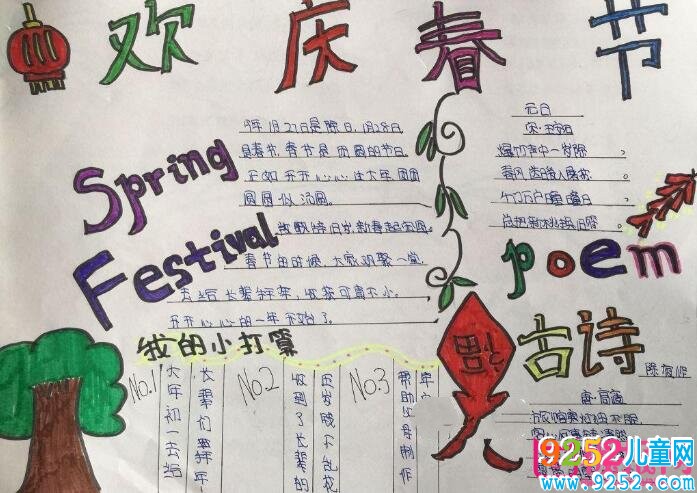 欢庆春节
Spring
Festival
今年1月27日是除夕,1月28日
是春节,春节是团圆的节日
开开心心过大年 团团
圆圆似汤圆。
春节的时候,大家欢聚一堂,
去给长辈拜年,收获可真不小。
开开心心的一年开始了。
元日
宋·王安石
爆竹声中一岁除
春风送暖入屠苏
千门万户曈曈日
总把新桃换旧符
poem
福
古诗
除夜作
唐·高适
我的小打算
No.1
大年初一去给
长辈们拜年
No.2
收到了长辈的
压岁钱不乱花
No.3
帮助父母制作
9252儿童网
www.9252.com